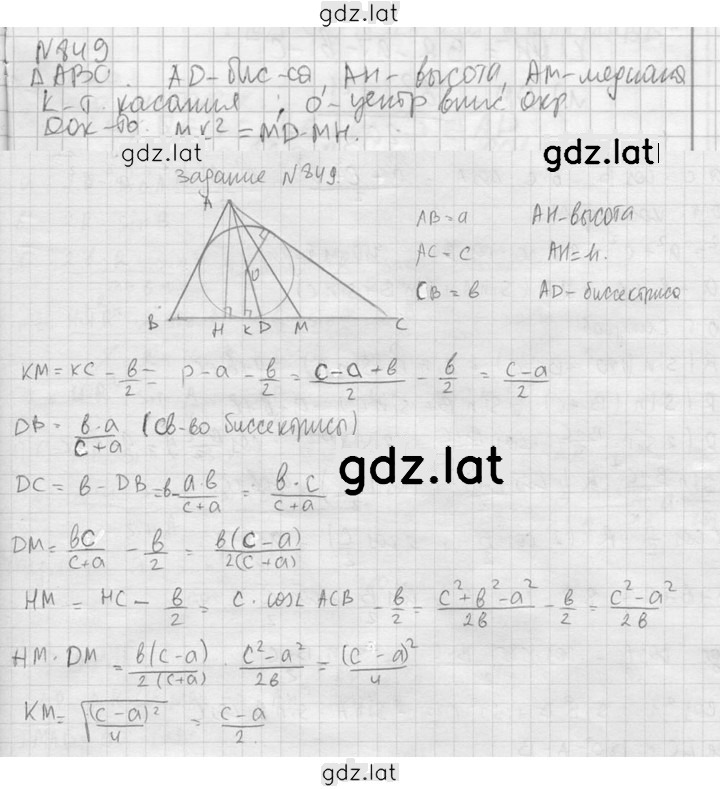 gdz.lat
N849
ΔABC. AD-бис-са, AH-высота, AM-медиана
K-т. касания; O-центр впис. окр
Док-ть. MK^2 = MD·MH.
gdz.lat
gdz.lat
Задание N849.
A
O
B H K D M C
AB=a AH-высота
AC=c AH=h.
CB=в AD-биссектриса
KM = KC - в/2 = p-a - в/2 = (c-a+в)/2 - в/2 = (c-a)/2
DB = в·a/(c+a) (св-во биссектрисы)
gdz.lat
DC = в - DB = в - a·в/(c+a) = в·c/(c+a)
DM = вc/(c+a) - в/2 = в(c-a)/2(c+a)
HM = HC - в/2 = c·cos∠ACB - в/2 = (c^2+в^2-a^2)/2в - в/2 = (c^2-a^2)/2в
HM·DM = в(c-a)/2(c+a) · (c^2-a^2)/2в = (c-a)^2/4
KM = √((c-a)^2/4) = (c-a)/2.
gdz.lat